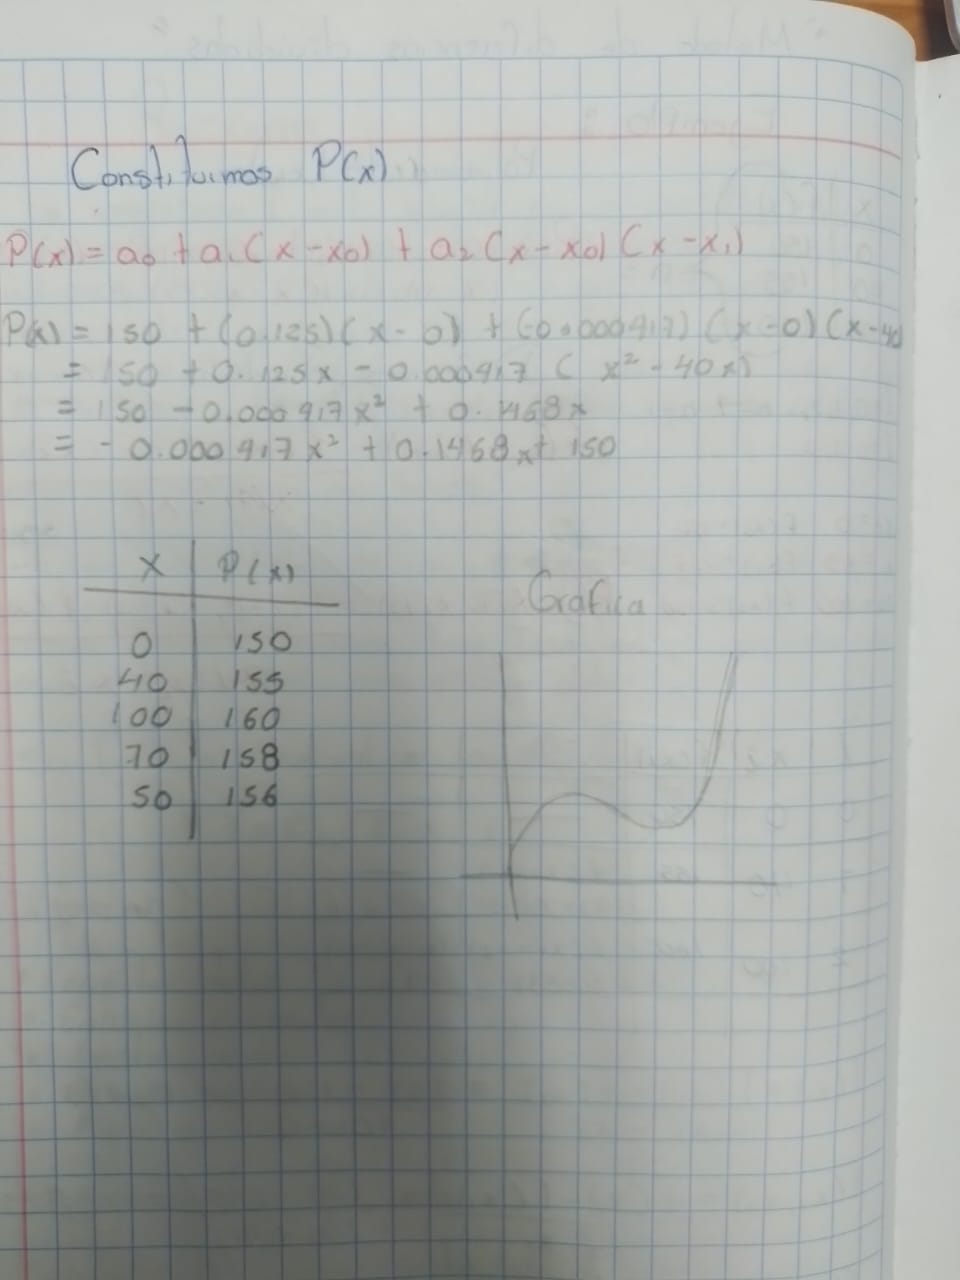 Constituimos P(x)
P(x) = a0 + a1 (x - x0) + a2 (x - x0) (x - x1)
P(x) = 150 + (0.125)(x - 0) + (-0.000417) (x - 0) (x - 40
= 150 + 0.125x - 0.000417 (x² - 40x)
= 150 - 0.000417x² + 0.1468x
= - 0.000417x² + 0.1468x + 150
x P(x)
Grafica
0 150
40 155
100 160
70 158
50 156